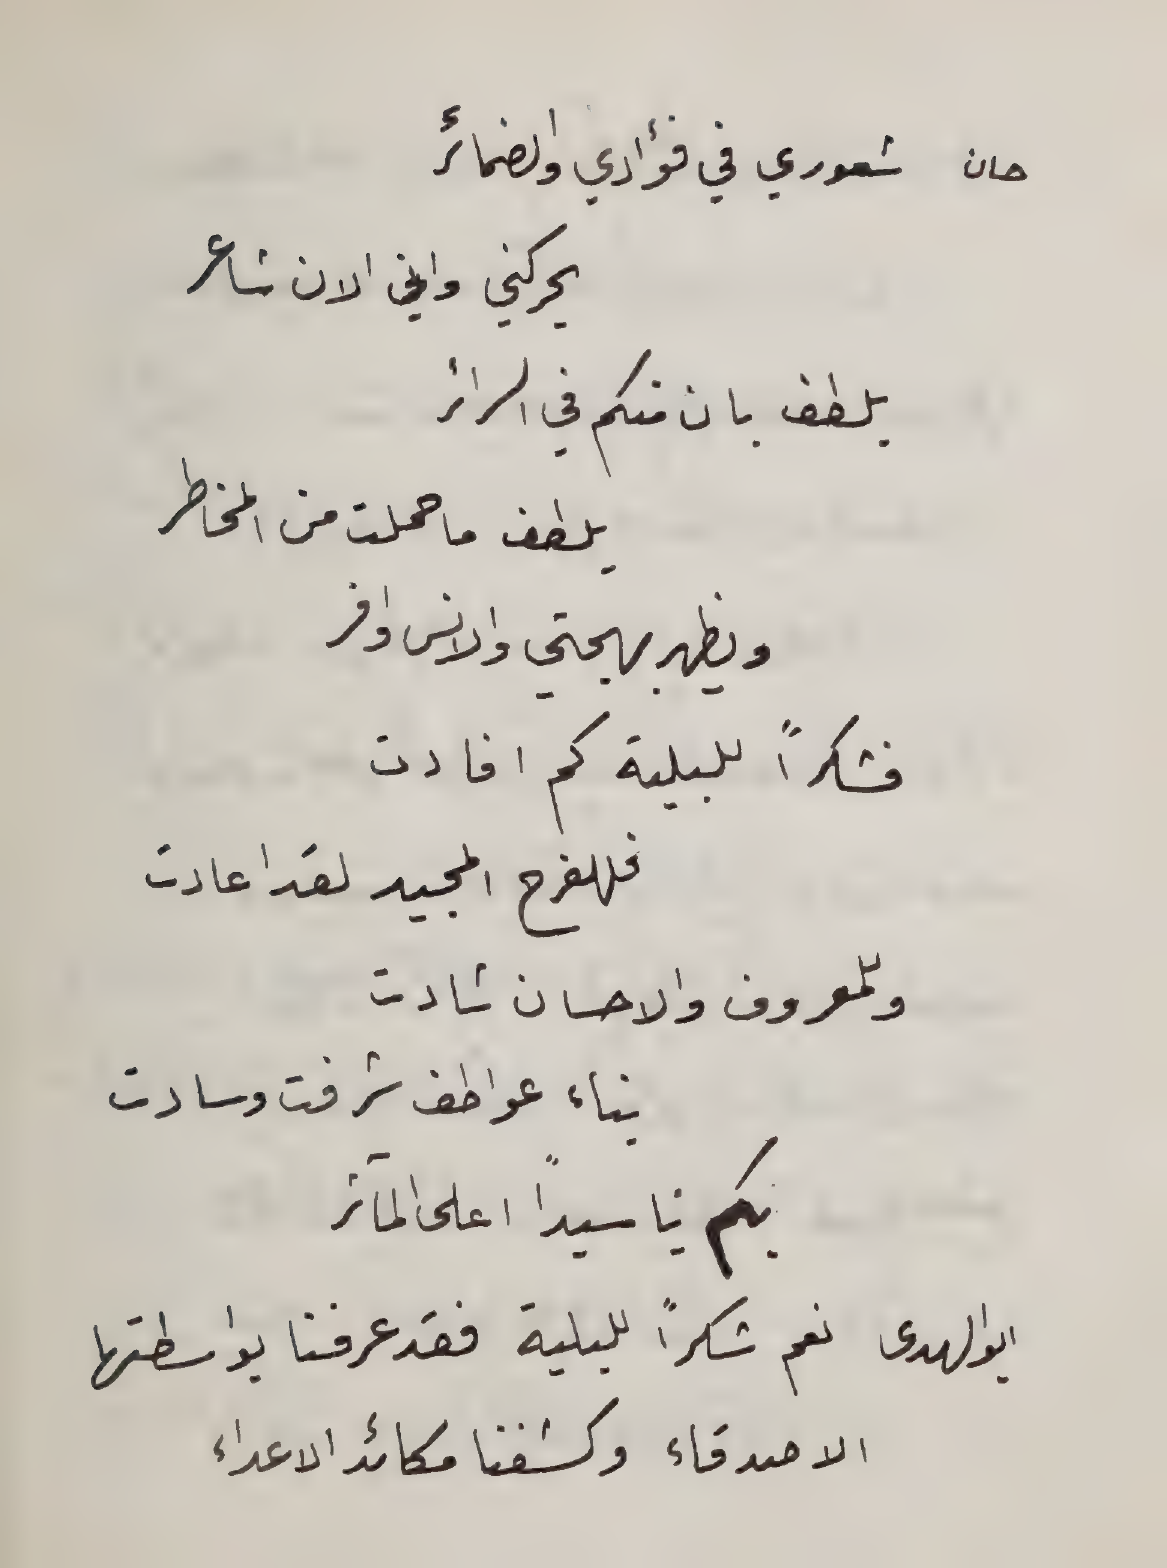 حان شعوري في فؤادي والضمائر
يحركني واني الان شاعر
بلطف بان منكم في السرائر
يلطف ما حملت من المخاطر
ويظهر بهجتي والانس وافر
فشكراً للبلية كم افادت
فللفرح المجيد لقد اعادت
وللمعروف والاحسان شادت
بناء عواطف شرفت وسادت
بكم يا سيداً اعلى المآثر
ابو الهدى نعم شكراً للبلية فقد عرفنا بواسطتها
الاصدقاء وكشفنا مكائد الاعداء